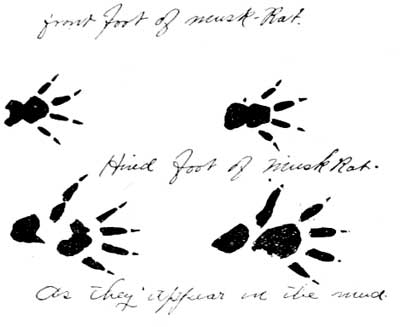 front foot of musk-Rat.
Hind foot of Musk Rat.
As they appear in the mud.